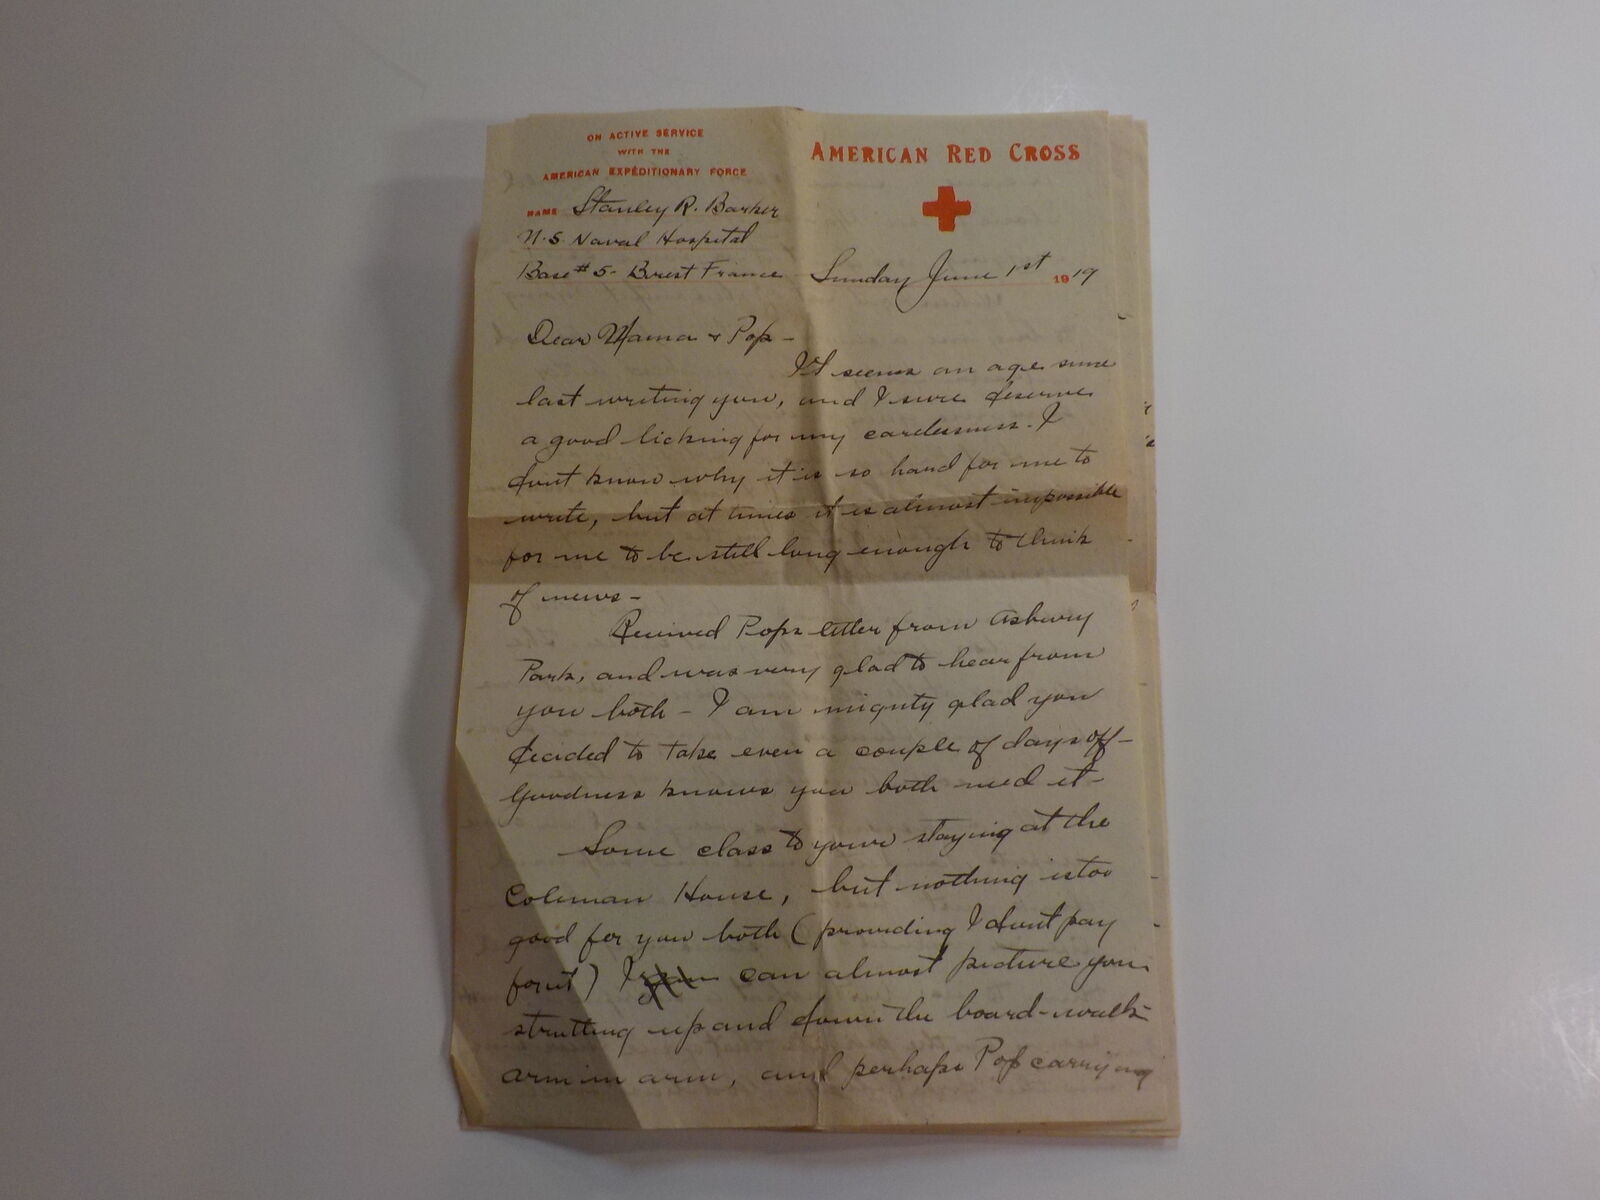 ON ACTIVE SERVICE
WITH THE
AMERICAN EXPEDITIONARY FORCE
NAME Stanley R. Barker
U.S. Naval Hospital
Base #5- Brest France
AMERICAN RED CROSS
Sunday June 1st 1919
Dear Mama & Pop-
It seems an age since
last writing you, and I sure deserve
a good licking for my carelessness. I
dont know why it is so hard for me to
write, but at times it is almost impossible
for me to be still long enough to think
of news-
Received Pops letter from Asbury
Park, and was very glad to hear from
you both - I am mighty glad you
decided to take even a couple of days off-
Goodness knows you both need it-
Some class to your staying at the
Coleman House, but nothing is too
good for you both (providing I dont pay
for it) I can almost picture you
strutting up and down the board-walk
arm in arm, and perhaps Pop carrying